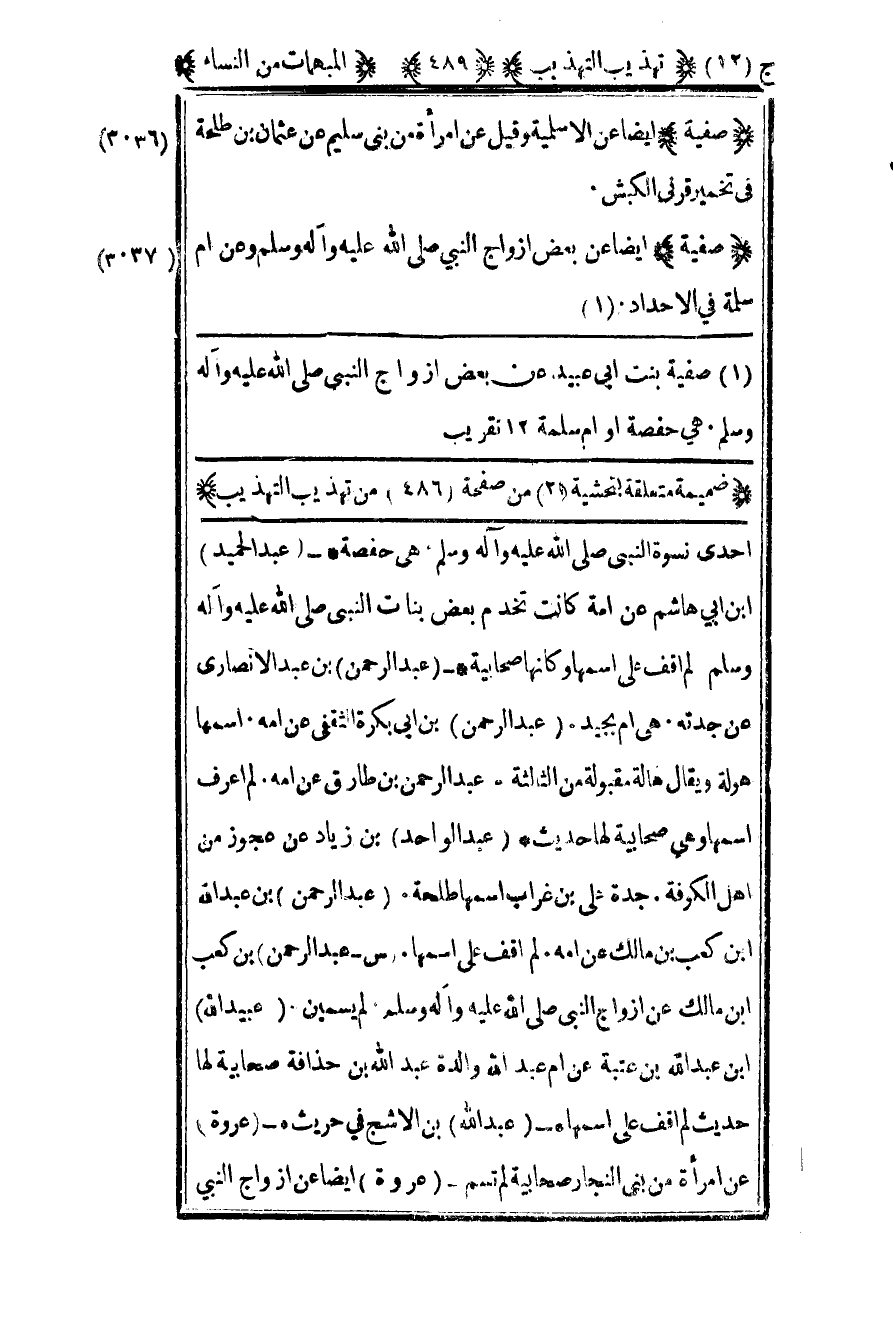 ج (١٢) ﴿ تهذيب التهذيب ﴾ ﴿ ٤٨٩ ﴾ ﴿ المبهمات من النساء ﴾
﴿ صفية ﴾ ايضا عن الاسلمية وقيل عن امرأة من بنى سليم عن عثمان بن طلحة (٣٠٣٦)
فى تخمير قرنى الكبش ٠
﴿ صفية ﴾ ايضا عن بعض ازواج النبي صلى الله عليه وآله وسلم وعن ام (٣٠٣٧)
سلمة في الاحداد ٠ (١)
(١) صفية بنت ابى عبيد. عن بعض ازواج النبى صلى الله عليه وآله
وسلم ٠ هي حفصة او ام سلمة ١٢ تقريب
﴿ ضميمة متعلقة بحشية (٢) من صفحة (٤٨٦) من تهذيب التهذيب ﴾
احدى نسوة النبى صلى الله عليه وآله وسلم ٠ هى حفصة * ـ (عبدالحميد)
ابن ابي هاشم عن امة كانت تخدم بعض بنات النبى صلى الله عليه وآله
وسلم لم اقف على اسمها وكانها صحابية * ـ (عبدالرحمن) بن عبد الانصارى
عن جدته ٠ هى ام بجيد ٠ (عبدالرحمن) بن ابى بكرة الثقفى عن امه ٠ اسمها
هولة ويقال هالة مقبولة من الثالثة ٠ عبدالرحمن بن طارق عن امه ٠ لم اعرف
اسمها وهي صحابية لها حديث * (عبدالواحد) بن زياد عن عجوز من
اهل الكوفة ٠ جدة على بن غراب اسمها طلحة ٠ (عبدالرحمن) بن عبدالله
ابن كعب بن مالك عن امه ٠ لم اقف على اسمها ٠ (س ـ عبدالرحمن) بن كعب
ابن مالك عن ازواج النبى صلى الله عليه وآله وسلم ٠ لم يسمين ٠ (عبيدالله)
ابن عبدالله بن عتبة عن ام عبد الله والدة عبد الله بن حذافة صحابية لها
حديث لم اقف على اسمها * ـ (عبدالله) بن الاشج في حريث * ـ (عروة)
عن امرأة من بنى النجار صحابية لم تسم ـ (عروة) ايضا عن ازواج النبي